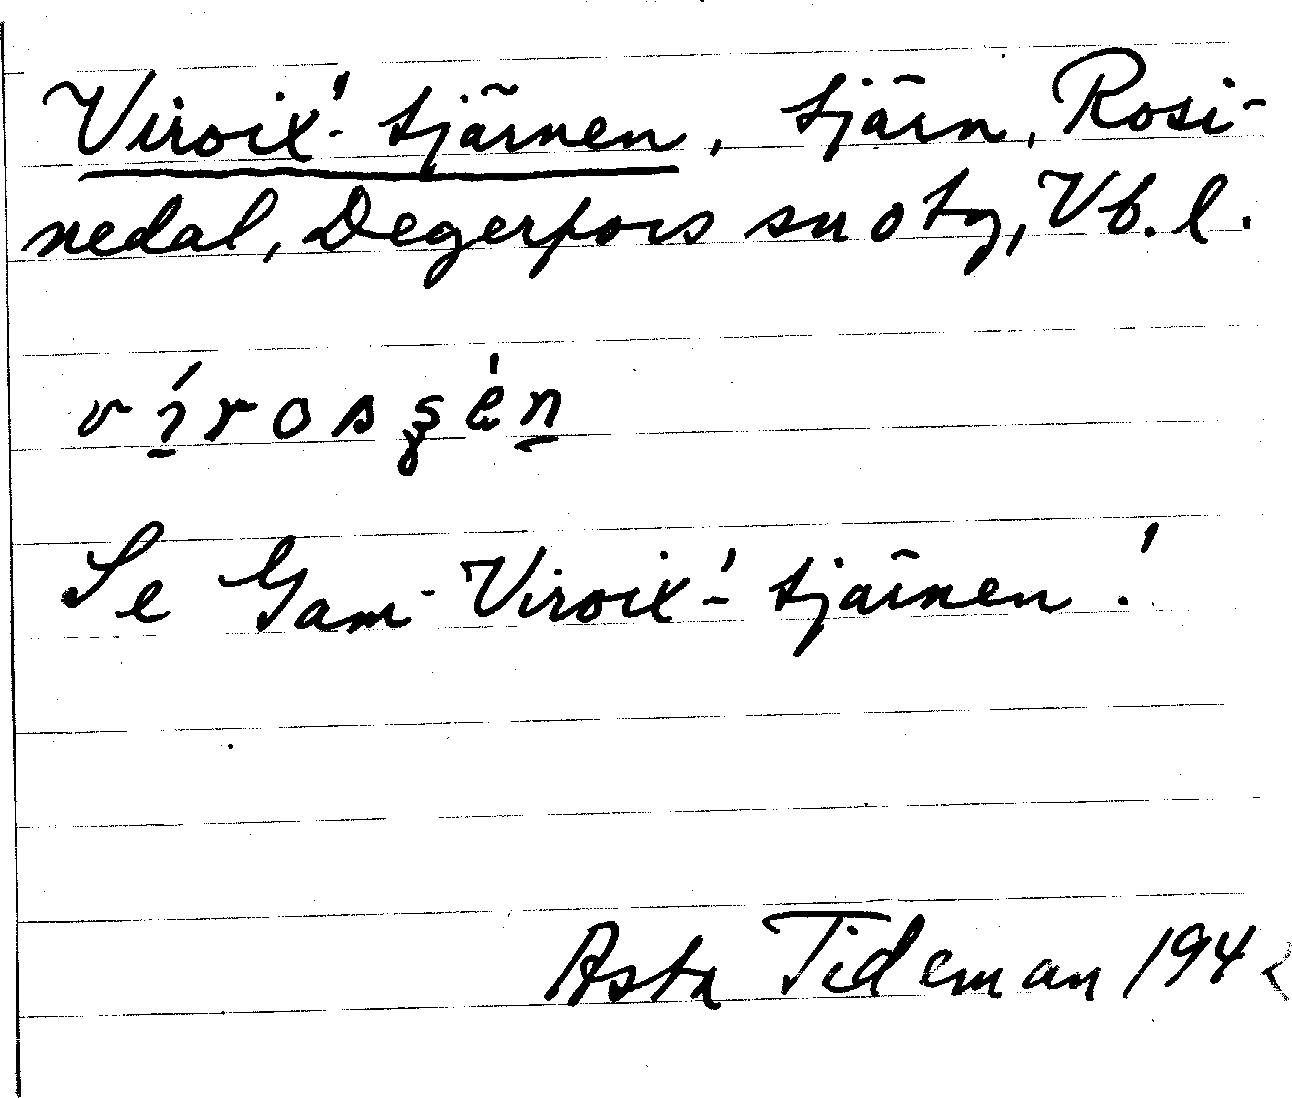 Viroix'-tjärnen, tjärn, Rosi-
nedal, Degerfors sn o tg, Vb. l.
Se Gam-Viroix'-tjärnen!
Asta Tideman 194